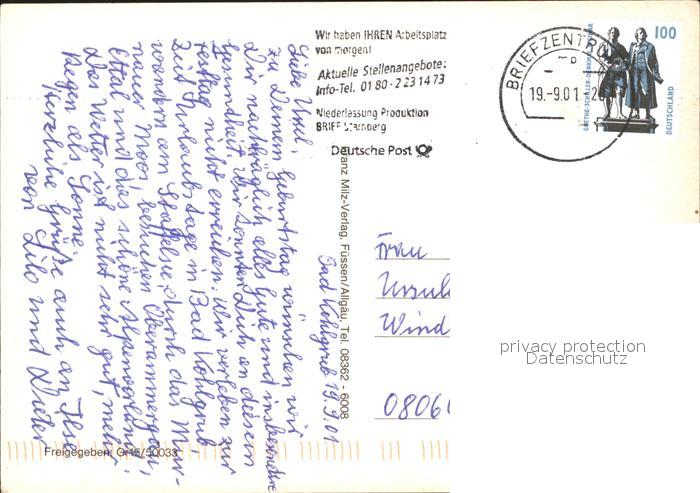 Wir haben IHREN Arbeitsplatz
von morgen!
Aktuelle Stellenangebote:
Info-Tel. 01 80 - 2 23 14 73
Niederlassung Produktion
BRIEF Starnberg
Deutsche Post
BRIEFZENTRU
19.-9.01
100
DEUTSCHLAND
GOETHE-SCHILLER-DENKMAL
Bad Kohlgrub 19.9.01
Liebe Ursel,
zu Deinem Geburtstag wünschen wir
Dir nachträglich alles Gute und insbesondere
Gesundheit. Wir konnten Dich an diesem
Festtag nicht erreichen. Wir verleben zur
Zeit Urlaubstage in Bad Kohlgrub -
wandern am Staffelsee, durch das Mur-
nauer Moos, besuchen Oberammergau,
Ettal und das schöne Alpenvorland.
Das Wetter ist nicht sehr gut, mehr
Regen als Sonne.
Herzliche Grüße auch an Ilse
von Lilo und Dieter
Franz Milz-Verlag, Füssen/Allgäu, Tel. 08362 - 6008
Frau
Ursul
Wind
0806
privacy protection
Datenschutz
Freigegeben: G 16/30033